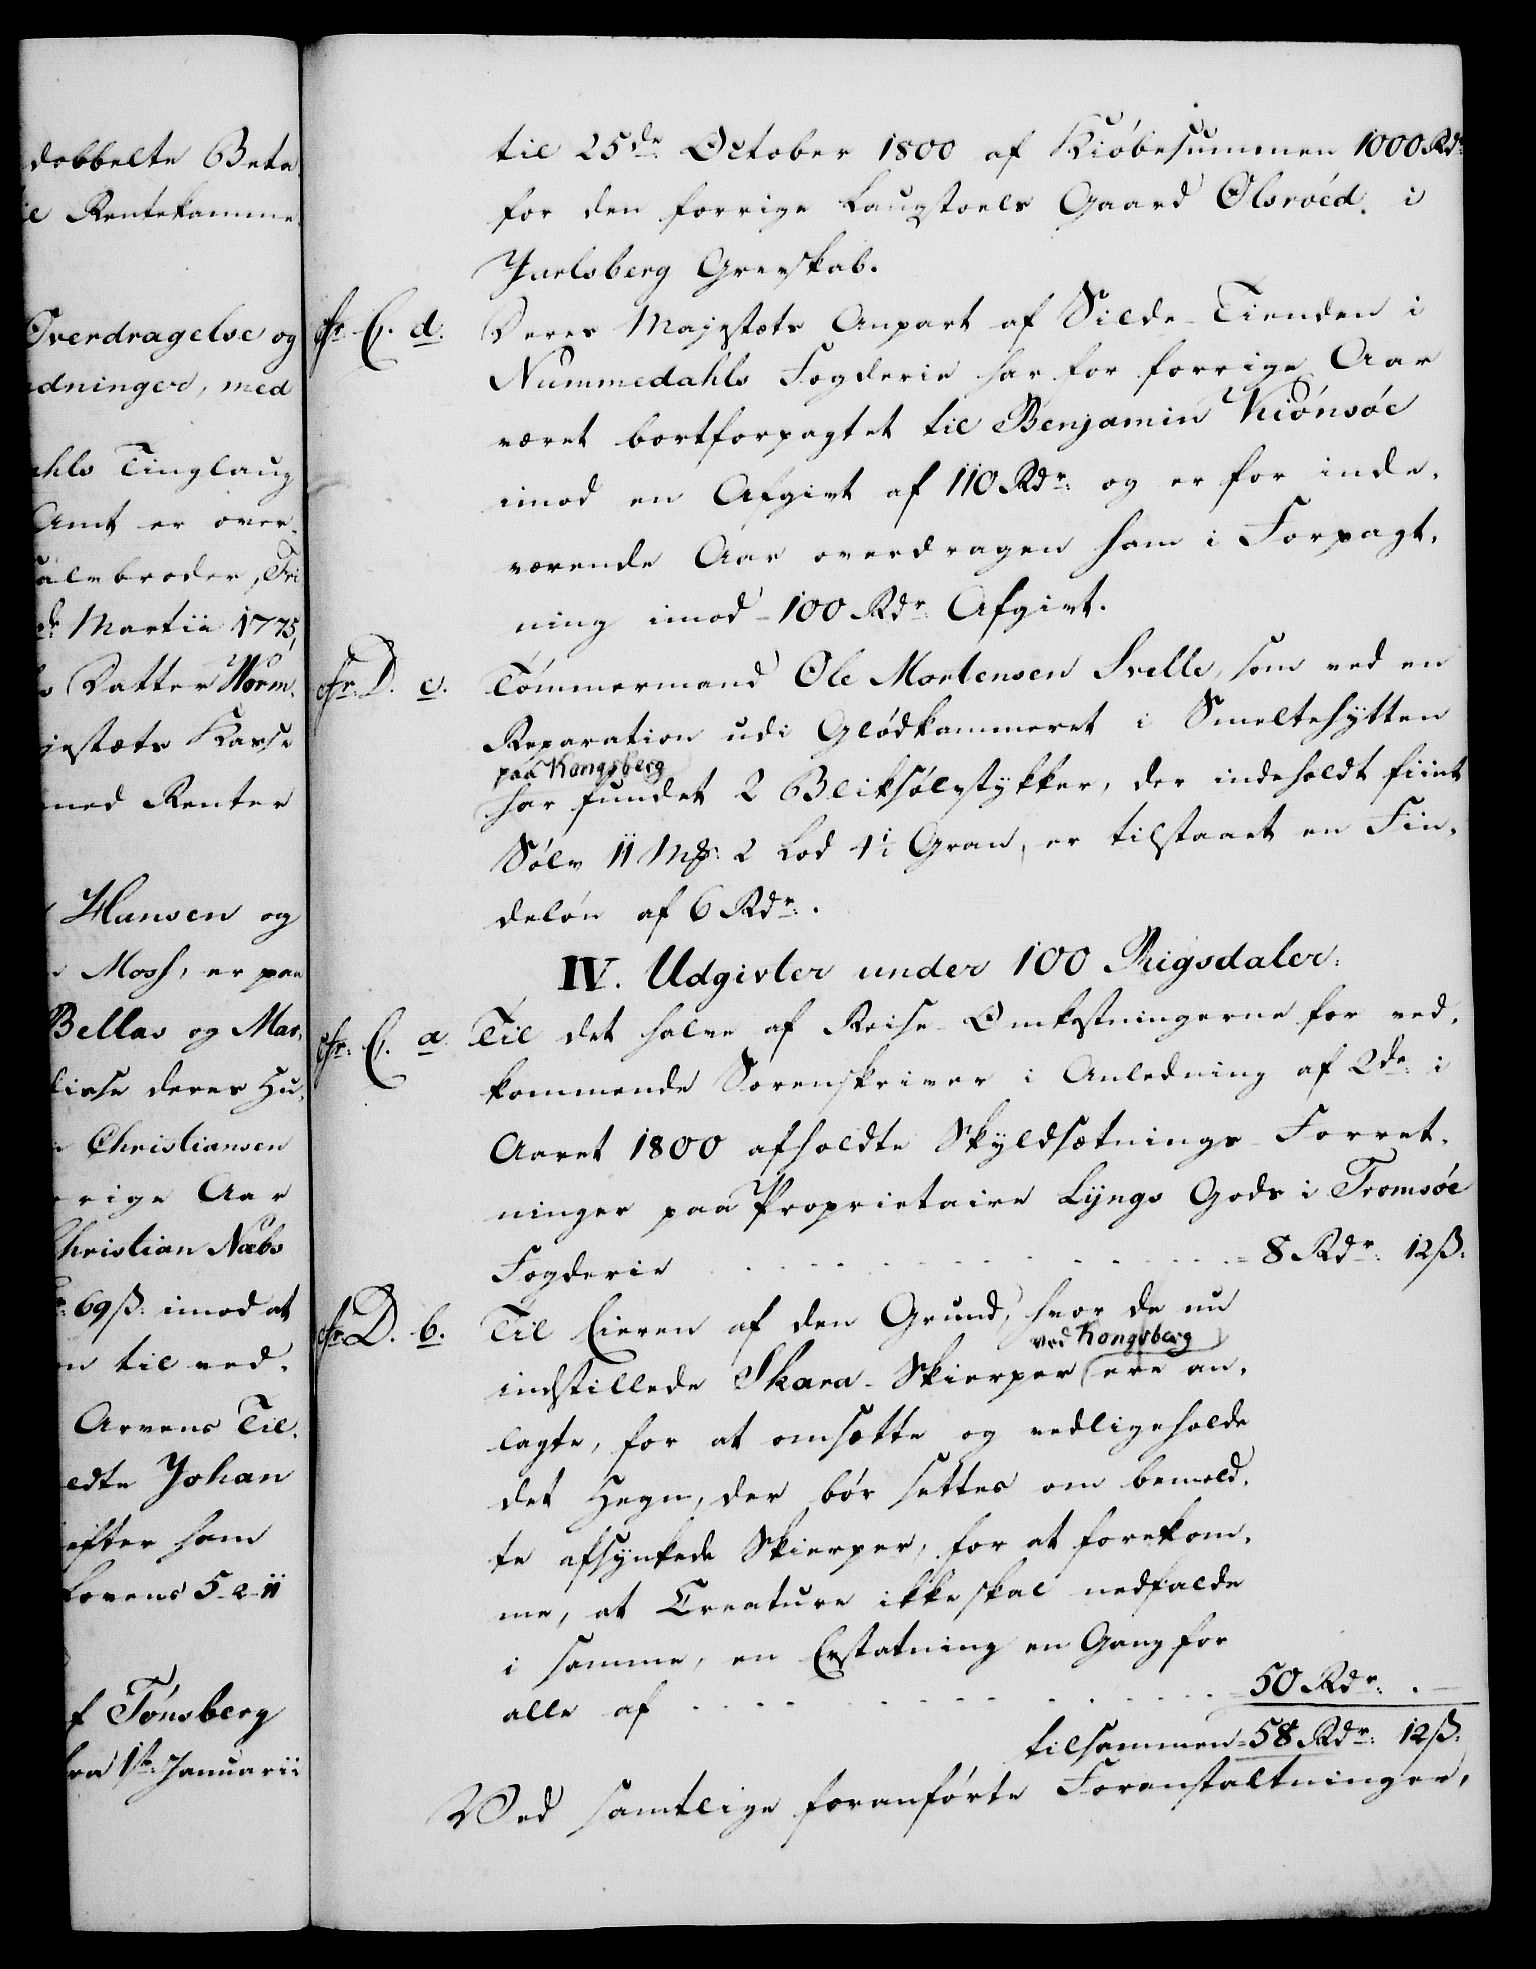 dobbelte Beta
Rentekamme
Overdragelse og
dninger, med
ahls Tinglaug
Amt er over-
alvbroder, Fri
de Martii 1775,
Datter Worm.
jestæts Kasse
med Renter
Hansen og
Moss, er paa
Bellas og Mar-
lisse deres Hu-
Christiansen
rrige Aar
Christian Næbs
69 ß. imod at
til ved-
Arvens Til-
ldte Johan
efter ham
Lovens 5-2-11
f Tønsberg
fra 1ste Januarii
til 25de October 1800 af Kiøbesummen 1000 Rdr
for den forrige Laugstoels Gaard Olsrøed i
Jarlsberg Grevskab.
cfr. C. d. Deres Majestæts Anpart af Silde-Tienden i
Nummedahls Fogderie har for forrige Aar
været bortforpagtet til Benjamin Kiønsøe
imod en Afgivt af 110 Rdr. og er for inde-
værende Aar overdragen ham i Forpagt-
ning imod 100 Rdr. Afgivt.
cfr. D. e. Tømmermand Ole Mortensen Svelle, som ved en
Reparation udi Glødkammeret i Smeltehytten
paa Kongsberg
har fundet 2 Bliksølvstykker, der indeholdt fiint
Sølv 11 Mk: 2 Lod Gran, er tilstaaet en Fin-
deløn af 6 Rdr.
IV. Udgivter under 100 Rigsdaler.
cfr. C. a. Til det halve af Reise-Omkostningerne for ved-
kommende Sorenskriver i Anledning af 2de i
Aaret 1800 afholdte Skyldsætnings-Forret-
ninger paa Proprietaire Lyngs Gods i Tromsøe
Fogderie - - - 8 Rdr. 12 ß.
cfr. D. b. Til Eieren af den Grund, hvor de nu
ved Kongsberg
indstillede Skara-Skierper ere an-
lagte, for at omsætte og vedligeholde
det Hegn, der bør settes om bemeld-
te afsynkede Skierper, for at forekom-
me, at Creature ikke skal nedfalde
i samme, en Erstatning en Gang for
alle af - - - 50 Rdr. . -
tilsammen 58 Rdr. 12 ß.
Ved samtlige foranførte Foranstaltninger,